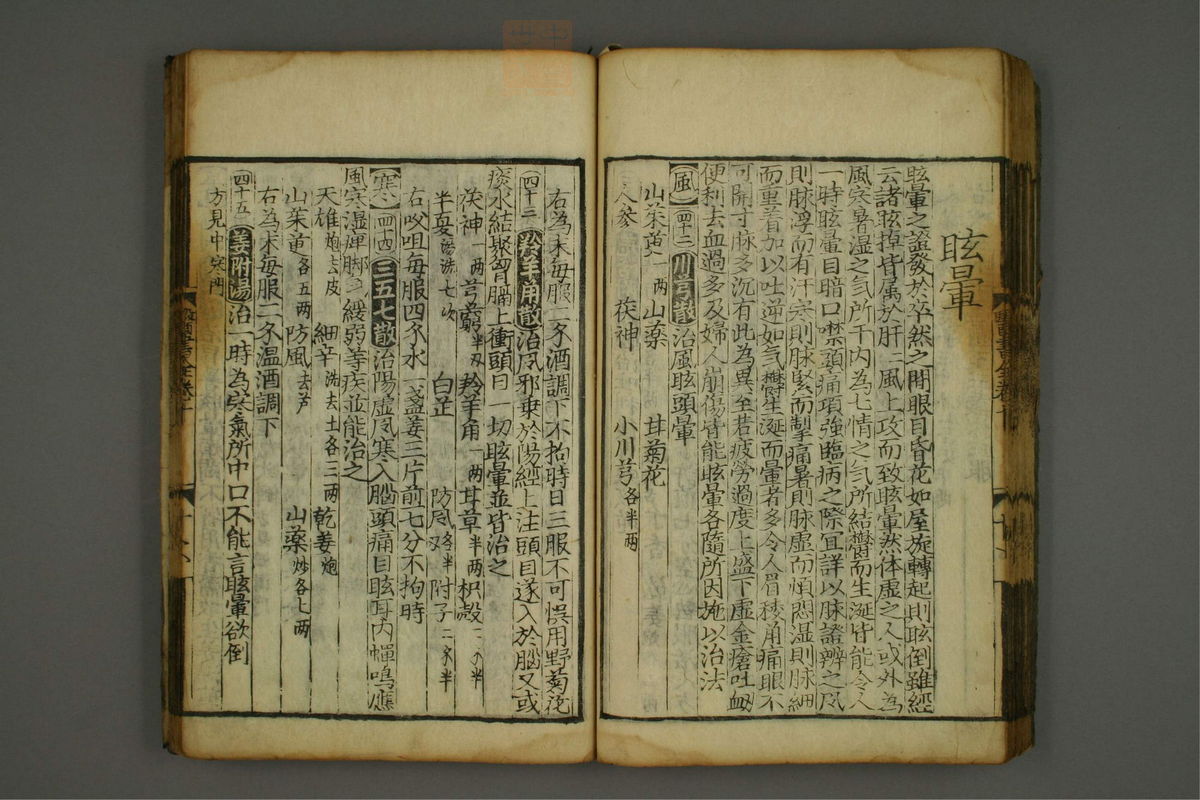 眩暈
眩暈之證發於卒然之間眼目昏花如屋旋轉起則眩倒雖經
云諸眩掉皆属於肝二風上攻而致眩暈然体虚之人或外為
風寒暑湿之気所干内為七情之気所結欝而生涎皆能令人
一時眩暈目暗口噤頭痛項強臨病之際宜詳以脉證辨之风
則脉浮而有汗寒則脉緊而掣痛暑則脉虚而煩悶湿則脉細
而重着加以吐逆如気欝生涎而暈者多令人眉稜角痛眼不
可開寸脉多沉有此為異至若疲勞過度上盛下虚金瘡吐衂
便利去血過多及婦人崩傷皆能眩暈各隨所因施以治法
風 四十二 川芎散 治風眩頭暈
山茱萸一两 山藥 甘菊花
人參 茯神 小川芎各半两
右為末每服二尒酒調下不拘時日三服不可悮用野菊花
四十三 羚羊角散 治风邪乗於陽經上注頭目遂入於腦又或
痰水結聚胷膈上衝頭目一切眩暈並皆治之
茯神一两 芎藭半刄 羚羊角一两 甘草半两 枳殼二尒半
半夏湯洗七次 白芷 防风刄各半 附子二尒半
右㕮咀每服四尒水一盞姜三片煎七分不拘時
寒 四十四 三五七散 治陽虚风寒入腦頭痛目眩耳内蟬鳴應
風寒湿痺脚气緩弱等疾並能治之
天雄炮去皮 細辛洗去土各三两 乾姜炮
山茱萸各五两 防風去芦 山藥炒各七两
右為末每服二尒温酒調下
四十五 姜附湯 治一時為寒氣所中口不能言眩暈欲倒
方見中寒門